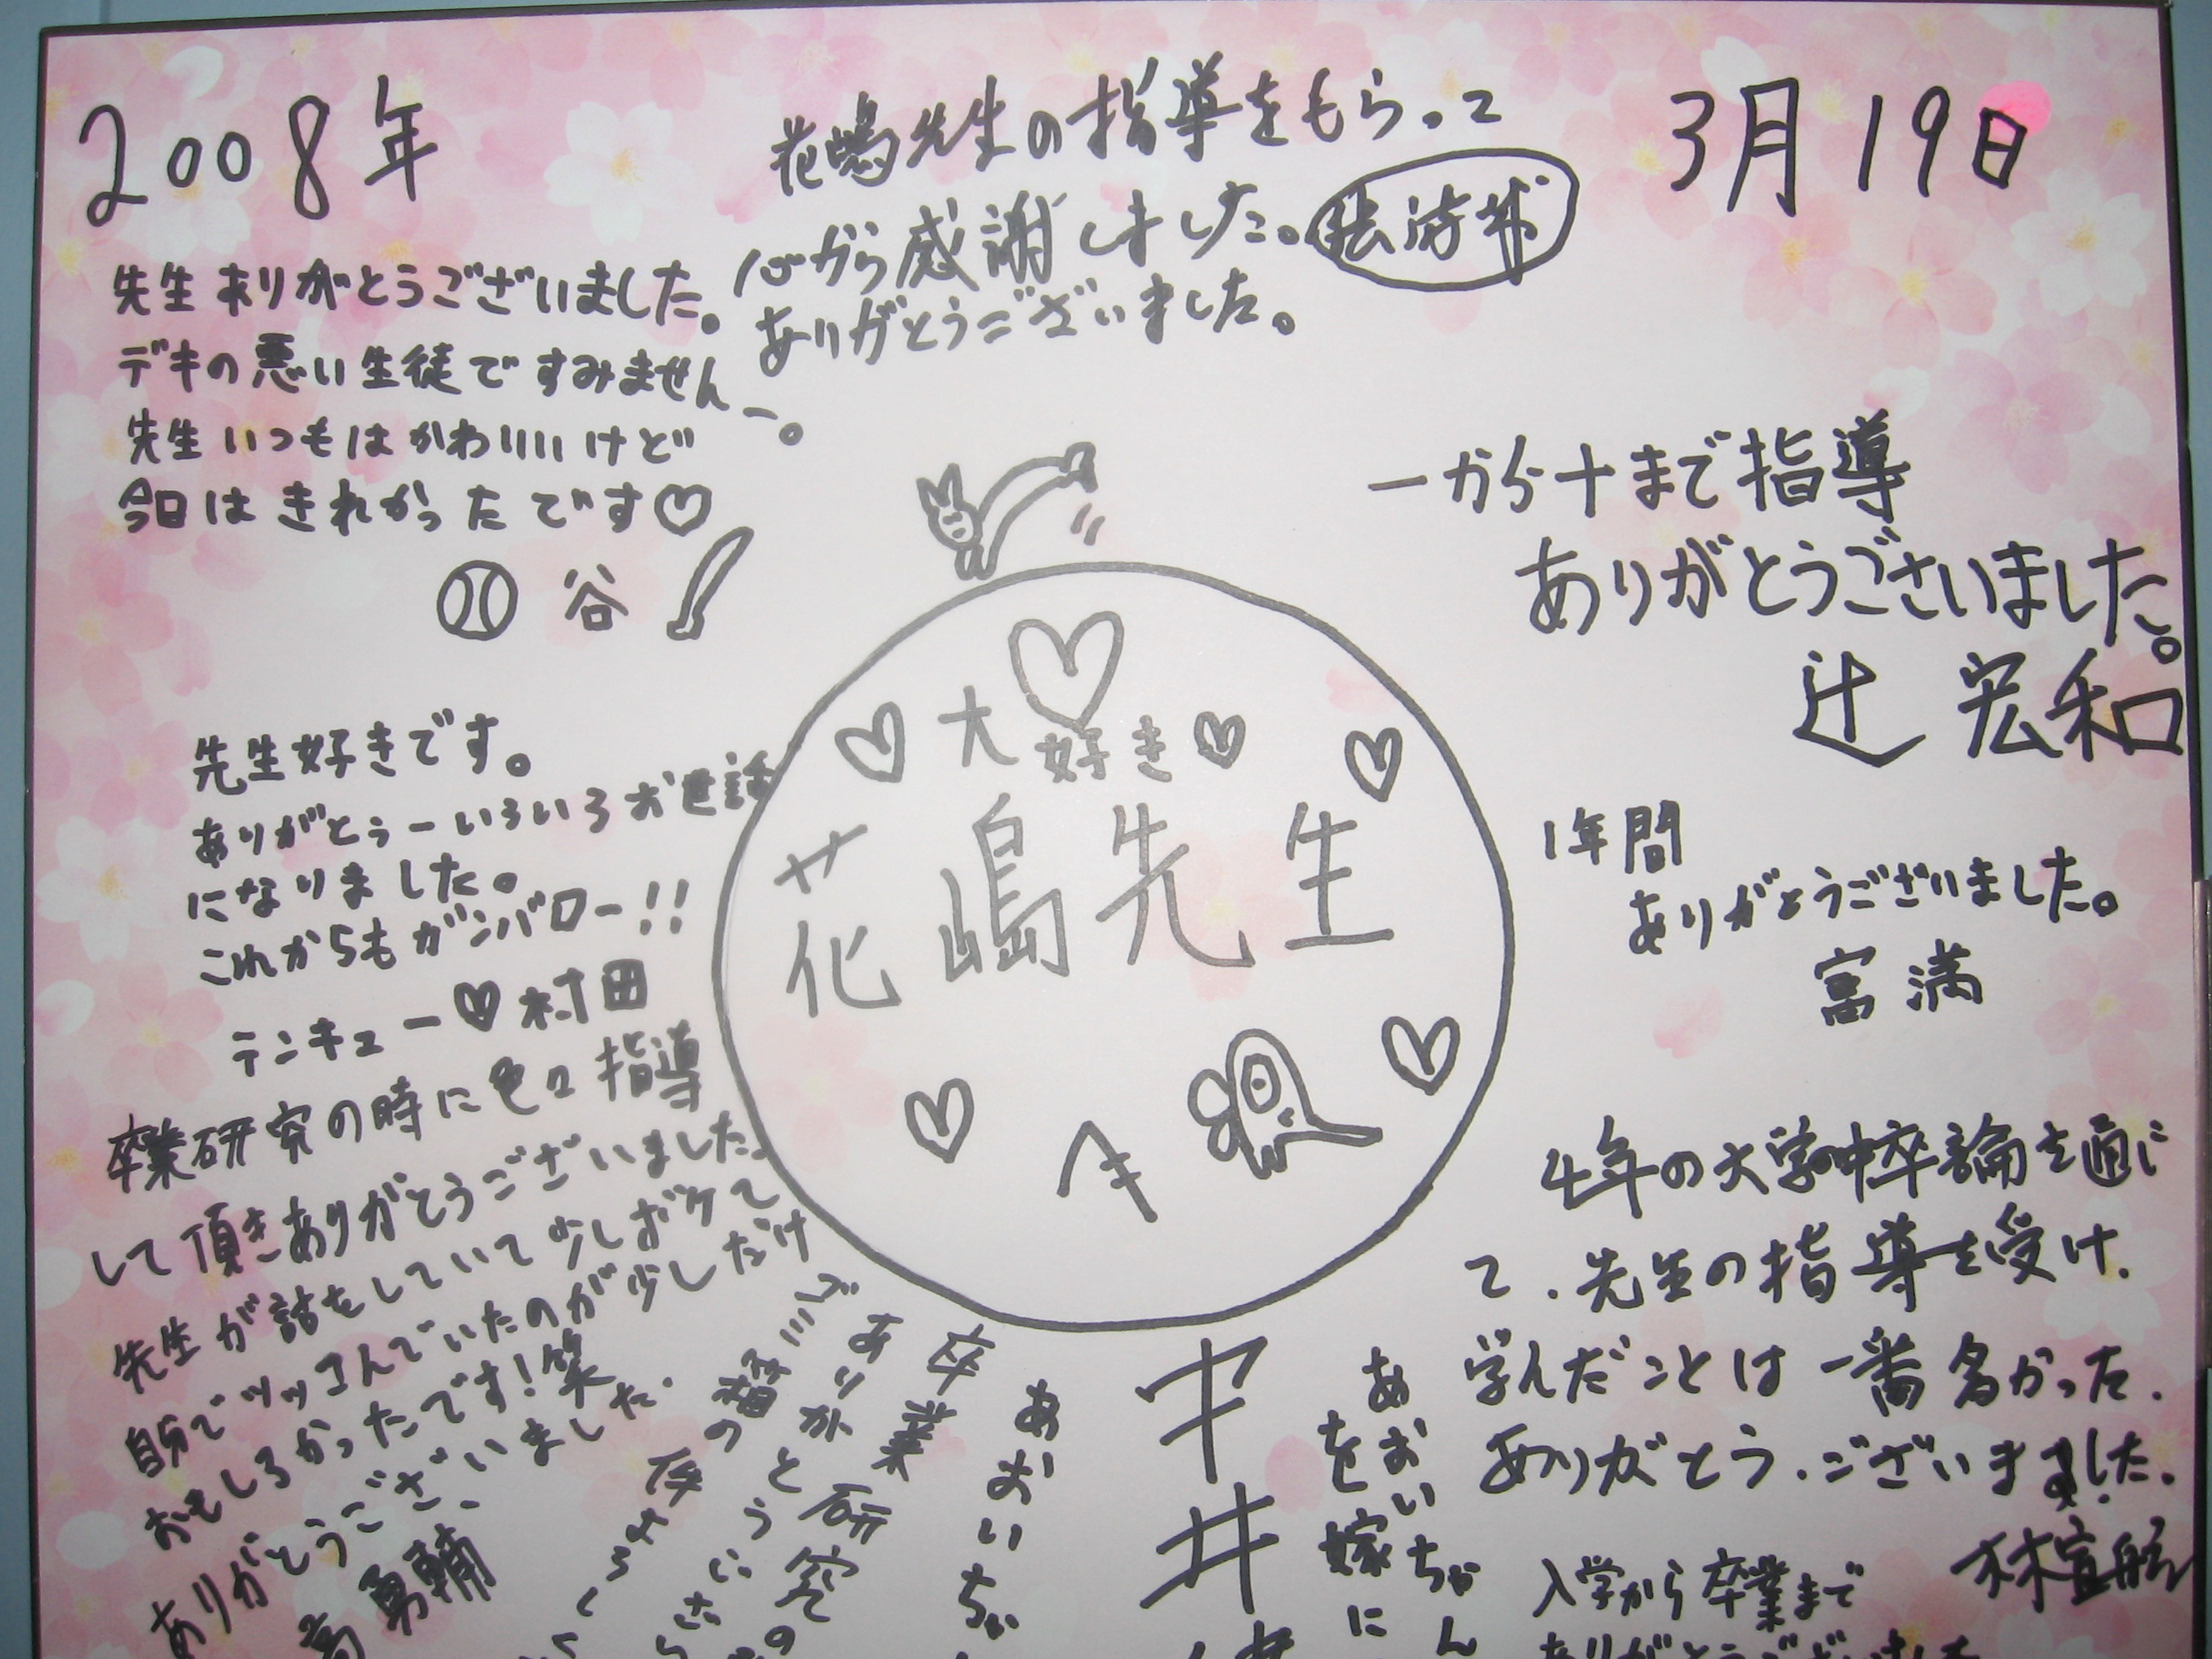 2008年
3月19日
花嶋先生の指導をもらって
心から感謝しました。
ありがとうございました。
先生ありがとうございました。
デキの悪い生徒ですみませんー。
先生いつもはかわいいけど
今日はきれかったです♡
谷
一から十まで指導
ありがとうございました。
辻 宏和
大好き
花嶋先生
へ
先生好きです。
ありがとぅーいろいろお世話
になりました。
これからもガンバロー!!
テンキュー♡村田
1年間
ありがとうございました。
富満
卒業研究の時に色々指導
して頂きありがとうございました。
先生が話をしていて少しボケて
自分でツッコんでいたのが少しだけ
おもしろかったです!笑
ありがとうございました.
勇輔
4年の大学中卒論を通じ
て.先生の指導を受け.
学んだことは一番多かった.
ありがとう.ございました.
林宣
入学から卒業まで
ありがとうございました
あおいちゃん
をお嫁に
中井
あおいちゃ
卒業研究の
ありがとうござ
ゴミ箱の